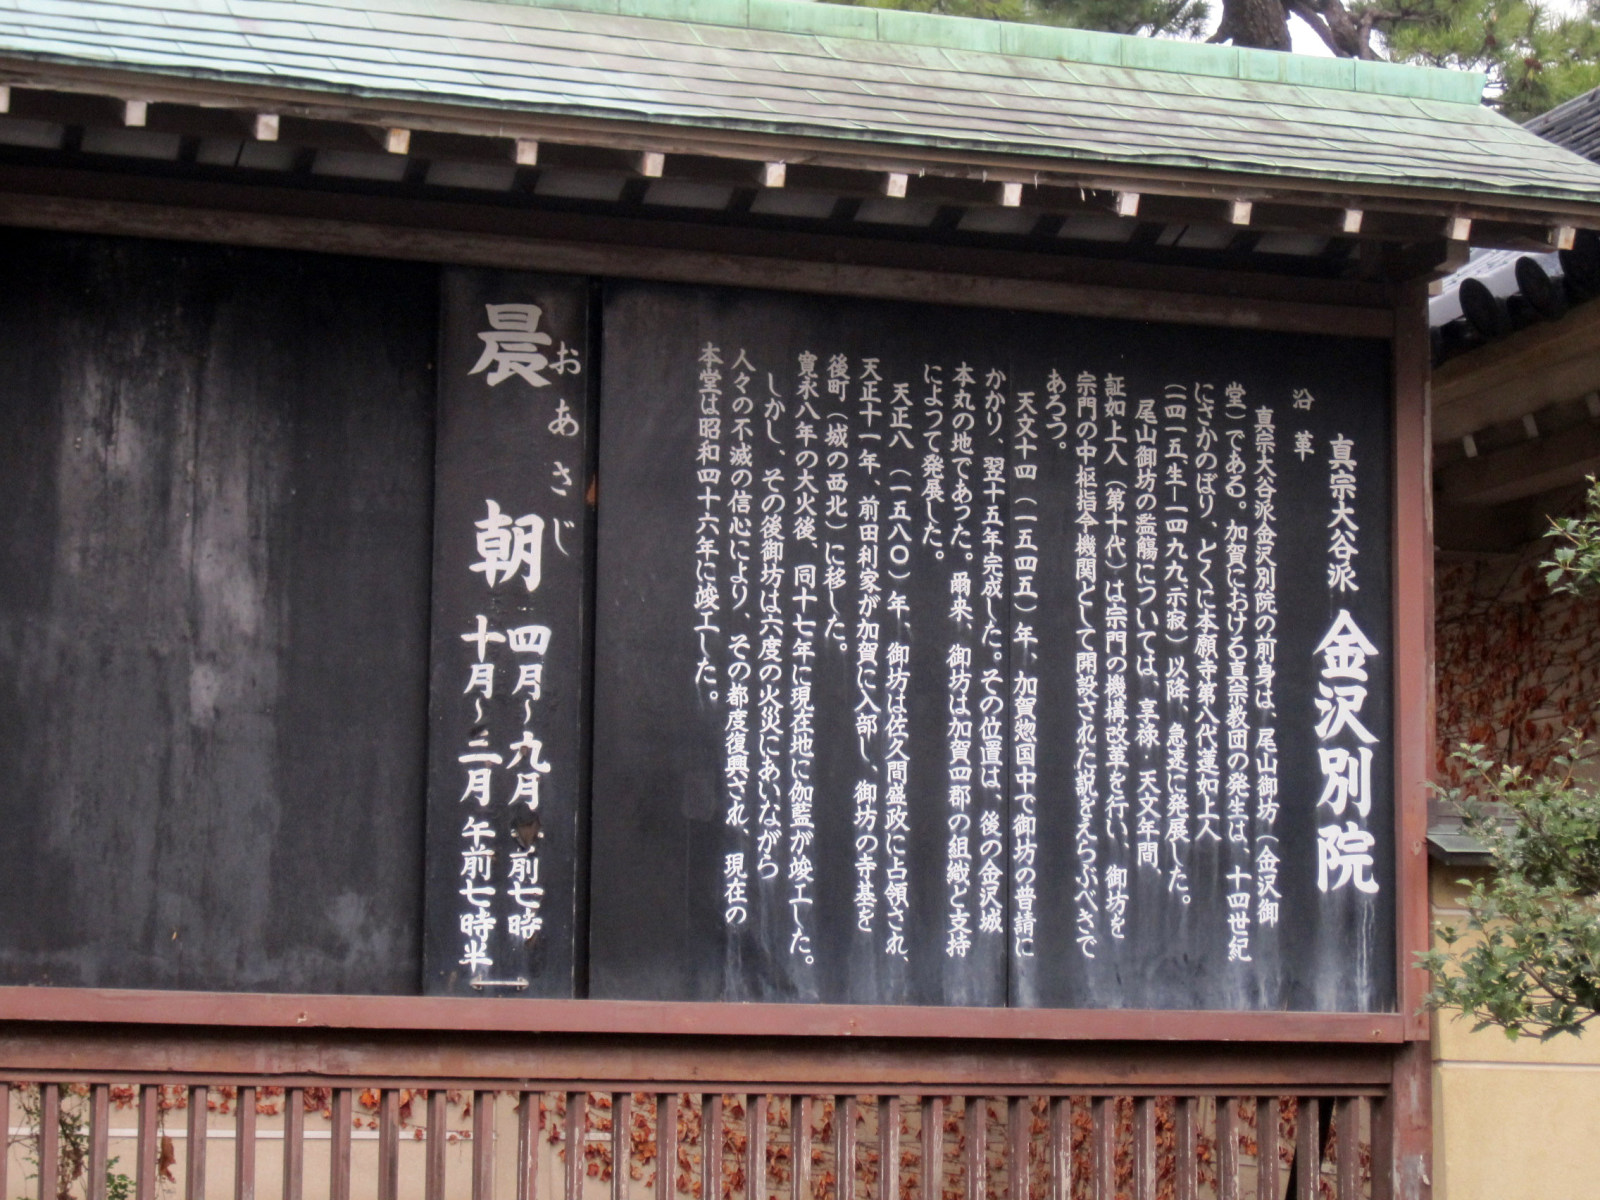 真宗大谷派 金沢別院
沿革
真宗大谷派金沢別院の前身は、尾山御坊（金沢御
堂）である。加賀における真宗教団の発生は、十四世紀
にさかのぼり、とくに本願寺第八代蓮如上人
（一四一五生ー一四九九示寂）以降、急速に発展した。
尾山御坊の濫觴については、享禄・天文年間、
証如上人（第十代）は宗門の機構改革を行い、御坊を
宗門の中枢指令機関として開設された説をえらぶべきで
あろう。
天文十四（一五四五）年、加賀惣国中で御坊の普請に
かかり、翌十五年完成した。その位置は、後の金沢城
本丸の地であった。爾来、御坊は加賀四郡の組織と支持
によって発展した。
天正八（一五八〇）年、御坊は佐久間盛政に占領され、
天正十一年、前田利家が加賀に入部し、御坊の寺基を
後町（城の西北）に移した。
寛永八年の大火後、同十七年に現在地に伽藍が竣工した。
しかし、その後御坊は六度の火災にあいながら
人々の不滅の信心により、その都度復興され、現在の
本堂は昭和四十六年に竣工した。
おあさじ
晨朝
四月〜九月 前七時
十月〜三月 午前七時半